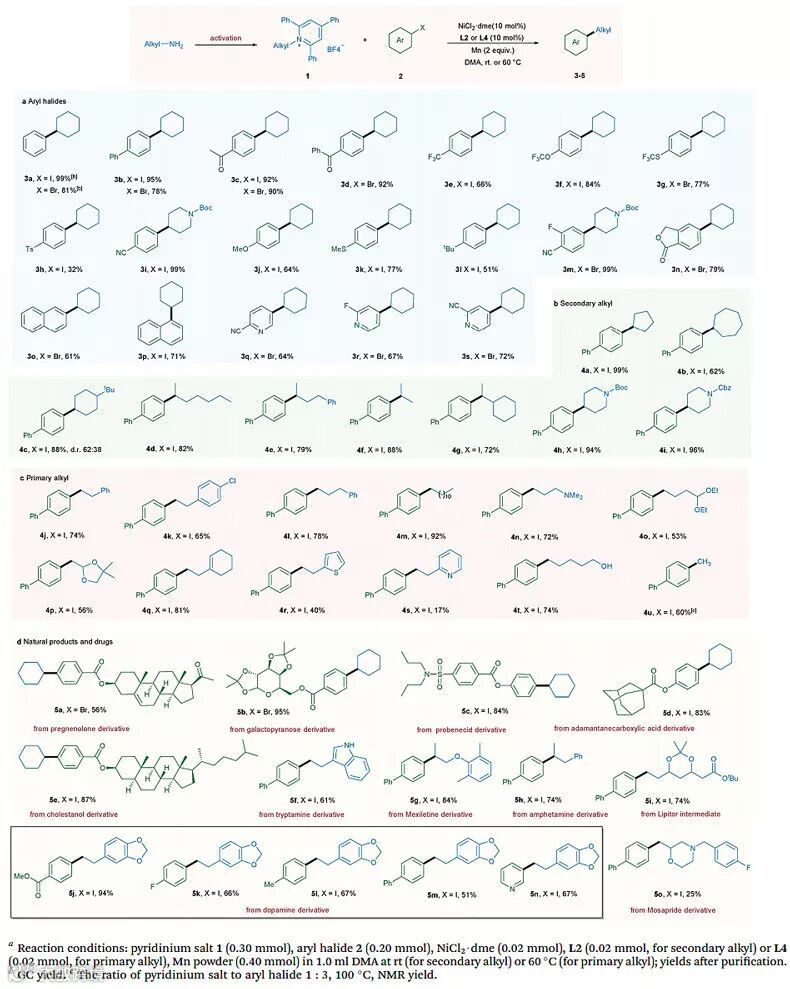 Ph Ph
Alkyl—NH₂ activation Alkyl N⁺ BF4⁻ + Ar X NiCl₂·dme(10 mol%) Ar Alkyl
L2 or L4 (10 mol%)
Mn (2 equiv.)
Ph DMA, rt. or 60 °C
1 2 3-5
a Aryl halides
Ph F₃C F₃CO F₃CS
O Ph O
3a, X = I, 99%[b] 3b, X = I, 95% 3c, X = I, 92% 3d, X = Br, 92% 3e, X = I, 66% 3f, X = I, 84% 3g, X = Br, 77%
X = Br, 81%[b] X = Br, 78% X = Br, 90%
Boc Boc
Ts NC N MeO MeS ᵗBu F NC N O O
3h, X = I, 32% 3i, X = I, 99% 3j, X = I, 64% 3k, X = I, 77% 3l X = I, 51% 3m, X = Br, 99% 3n, X = Br, 79%
NC N F N NC N
3o, X = Br, 61% 3p, X = I, 71% 3q, X = Br, 64% 3r, X = Br, 67% 3s, X = Br, 72%
b Secondary alkyl
Ph Ph
4a, X = I, 99% 4b, X = I, 62%
ᵗBu Ph N Boc N Cbz
Ph Ph Ph Ph Ph Ph Ph
4c, X = I, 88%, d.r. 62:38 4d, X = I, 82% 4e, X = I, 79% 4f, X = I, 88% 4g, X = I, 72% 4h, X = I, 94% 4i, X = I, 96%
c Primary alkyl
Ph Cl Ph ( )10 NMe₂ OEt
OEt
Ph Ph Ph Ph Ph Ph
4j, X = I, 74% 4k, X = I, 65% 4l, X = I, 78% 4m, X = I, 92% 4n, X = I, 72% 4o, X = I, 53%
O O S N OH CH₃
Ph Ph Ph Ph Ph Ph
4p, X = I, 56% 4q, X = I, 81% 4r, X = I, 40% 4s, X = I, 17% 4t, X = I, 74% 4u, X = I, 60%[c]
d Natural products and drugs
5a, X = Br, 56% 5b, X = Br, 95% 5c, X = I, 84% 5d, X = I, 83%
from pregnenolone derivative from galactopyranose derivative from probenecid derivative from adamantanecarboxylic acid derivative
NH O Ph O O O OᵗBu
5e, X = I, 87% 5f, X = I, 61% 5g, X = I, 84% 5h, X = I, 74% 5i, X = I, 74%
from cholestanol derivative from tryptamine derivative from Mexiletine derivative from amphetamine derivative from Lipitor intermediate
MeO O F Me Ph N Ph O N F
5j, X = I, 94% 5k, X = I, 66% 5l, X = I, 67% 5m, X = I, 51% 5n, X = I, 67% 5o, X = I, 25%
from dopamine derivative from Mosapride derivative
ᵃ Reaction conditions: pyridinium salt 1 (0.30 mmol), aryl halide 2 (0.20 mmol), NiCl₂·dme (0.02 mmol), L2 (0.02 mmol, for secondary alkyl) or L4
(0.02 mmol, for primary alkyl), Mn powder (0.40 mmol) in 1.0 ml DMA at rt (for secondary alkyl) or 60 °C (for primary alkyl); yields after purification.
GC yield. The ratio of pyridinium salt to aryl halide 1 : 3, 100 °C, NMR yield.